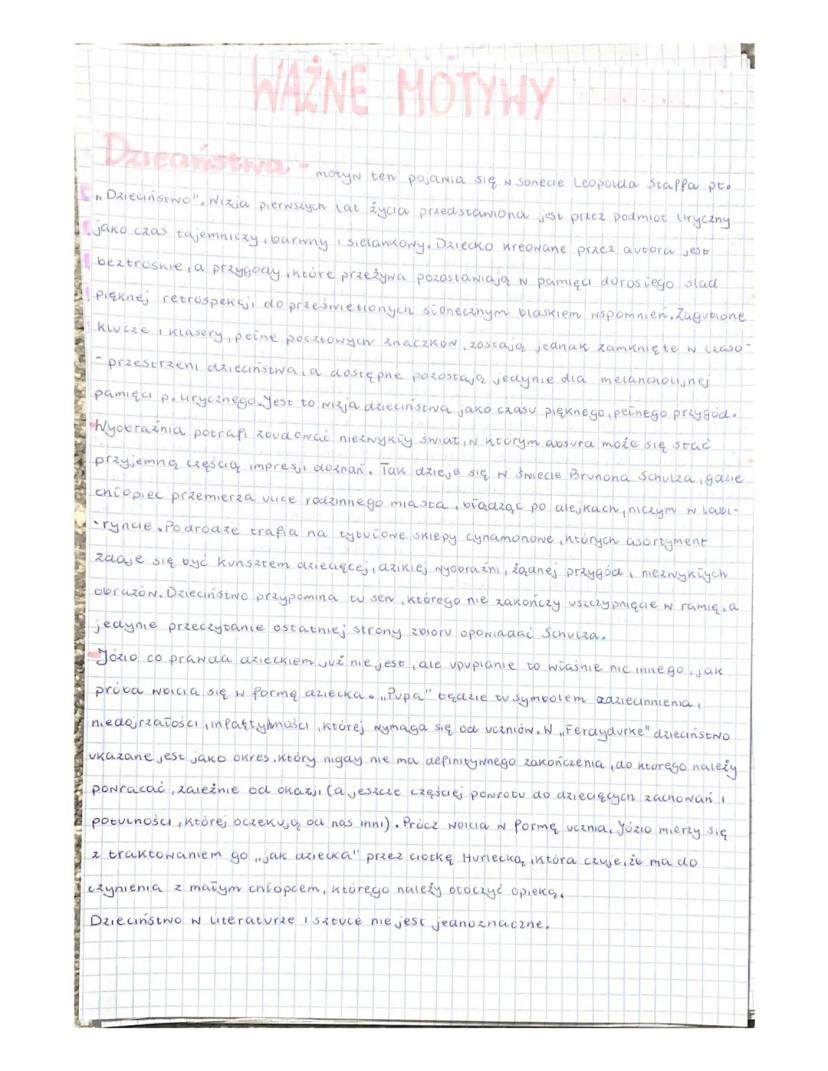 WAŻNE MOTYWY
Dzieciństwa - motyw ten pojawia się w sonecie Leopolda Staffa pt.
„Dzieciństwo". Wizja pierwszych lat życia przedstawiona jest przez podmiot liryczny
jako czas tajemniczy, barwny i sielankowy. Dziecko kreowane przez autora jest
beztroskie, a przygody, które przeżywa pozostawiają w pamięci dorosłego ślad
pięknej retrospekcji do prześwietlonych słonecznym blaskiem wspomnień. Zagubione
klucze i klasery, pełne pocztowych znaczków, zostają jednak zamknięte w czaso-
- przestrzeni dzieciństwa, a dostępne pozostają jedynie dla melancholijnej
pamięci p. lirycznego. Jest to wizja dzieciństwa jako czasu pięknego, pełnego przygód.
Wyobraźnia potrafi zbudować niezwykły świat, w którym absurd może się stać
przyjemną częścią impresji doznań. Tak dzieje się w świecie Brunona Schulza, gdzie
chłopiec przemierza ulice rodzinnego miasta, błądząc po alejkach, niczym w labi-
-ryncie. Po drodze trafia na tytułowe sklepy cynamonowe, których asortyment
zdaje się być kunsztem dziecięcej, dzikiej wyobraźni, żądnej przygód i niezwykłych
obrazów. Dzieciństwo przypomina tu sen, którego nie zakończy uszczypnięcie w ramię, a
jedynie przeczytanie ostatniej strony zbioru opowiadań Schulza.
Józio co prawda dzieckiem już nie jest, ale upupianie to właśnie nic innego, jak
próba wbicia się w formę dziecka. „Pupa" będzie tu symbolem zdziecinnienia,
niedojrzałości, infantylności, której wymaga się od uczniów. W „Ferdydurke" dzieciństwo
ukazane jest jako okres, który nigdy nie ma definitywnego zakończenia, do którego należy
powracać, zależnie od okazji (a jeszcze częściej powrotu do dziecięcych zachowań i
potulności, której oczekują od nas inni). Prócz wbicia w formę ucznia, Józio mierzy się
z traktowaniem go „jak dziecka" przez ciotkę Hurlecką, która czuje, że ma do
czynienia z małym chłopcem, którego należy otoczyć opieką.
Dzieciństwo w literaturze i sztuce nie jest jednoznaczne.